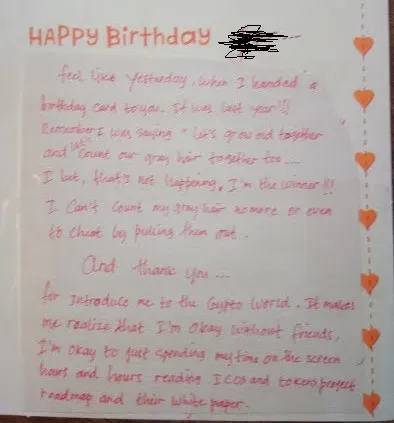 HAPPY Birthday
feel like yesterday, when I handed a
birthday card to you. It was last year!!!
Remember I was saying "let's grow old together
and let's count our gray hair together too....
I bet, that's not happening, I'm the winner!!!
I Can't Count my gray hair no more or even
to cheat by pulling them out.
And thank you...
for Introduce me to the Crypto World. It makes
me realize that I'm Okay without friends,
I'm okay to just spending my time on the screen
hours and hours reading ICOs and tokens project
roadmap and their white paper.